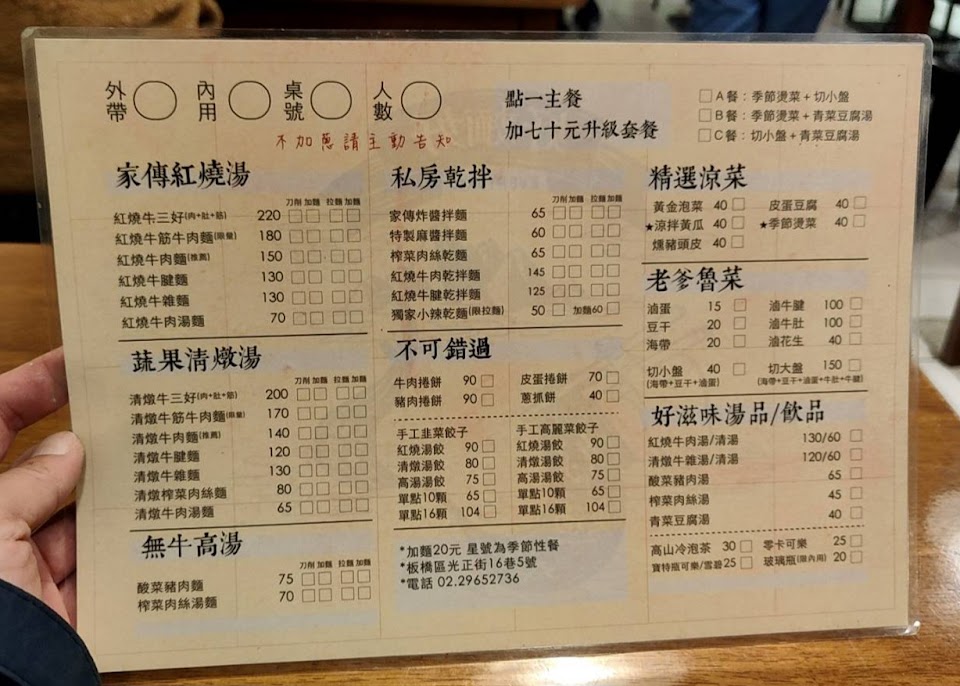 外帶 內用 桌號 人數
不加蔥請主動告知
點一主餐
加七十元升級套餐
A餐：季節燙菜+切小盤
B餐：季節燙菜+青菜豆腐湯
C餐：切小盤+青菜豆腐湯
家傳紅燒湯
刀削 加麵 拉麵 加麵
紅燒牛三好(肉+肚+筋) 220
紅燒牛筋牛肉麵(限量) 180
紅燒牛肉麵(推薦) 150
紅燒牛腱麵 130
紅燒牛雜麵 130
紅燒牛肉湯麵 70
蔬果清燉湯
刀削 加麵 拉麵 加麵
清燉牛三好(肉+肚+筋) 200
清燉牛筋牛肉麵(限量) 170
清燉牛肉麵(推薦) 140
清燉牛腱麵 120
清燉牛雜麵 130
清燉榨菜肉絲麵 80
清燉牛肉湯麵 65
無牛高湯
刀削 加麵 拉麵 加麵
酸菜豬肉麵 75
榨菜肉絲湯麵 70
私房乾拌
刀削 加麵 拉麵 加麵
家傳炸醬拌麵 65
特製麻醬拌麵 60
榨菜肉絲乾麵 65
紅燒牛肉乾拌麵 145
紅燒牛腱乾拌麵 125
獨家小辣乾麵(限拉麵) 50 加麵60
不可錯過
牛肉捲餅 90 皮蛋捲餅 70
豬肉捲餅 90 蔥抓餅 40
手工韭菜餃子
紅燒湯餃 90
清燉湯餃 80
高湯湯餃 75
單點10顆 65
單點16顆 104
手工高麗菜餃子
紅燒湯餃 90
清燉湯餃 80
高湯湯餃 75
單點10顆 65
單點16顆 104
*加麵20元 星號為季節性餐
*板橋區光正街16巷5號
*電話 02.29652736
精選涼菜
黃金泡菜 40 皮蛋豆腐 40
★涼拌黃瓜 40 ★季節燙菜 40
燻豬頭皮 40
老爹魯菜
滷蛋 15 滷牛腱 100
豆干 20 滷牛肚 100
海帶 20 滷花生 40
切小盤 40 切大盤 150
(海帶+豆干+滷蛋) (海帶+豆干+滷蛋+牛肚+牛腱)
好滋味湯品/飲品
紅燒牛肉湯/清湯 130/60
清燉牛雜湯/清湯 120/60
酸菜豬肉湯 65
榨菜肉絲湯 45
青菜豆腐湯 40
高山冷泡茶 30 零卡可樂 25
寶特瓶可樂/雪碧 25 玻璃瓶(限內用) 20